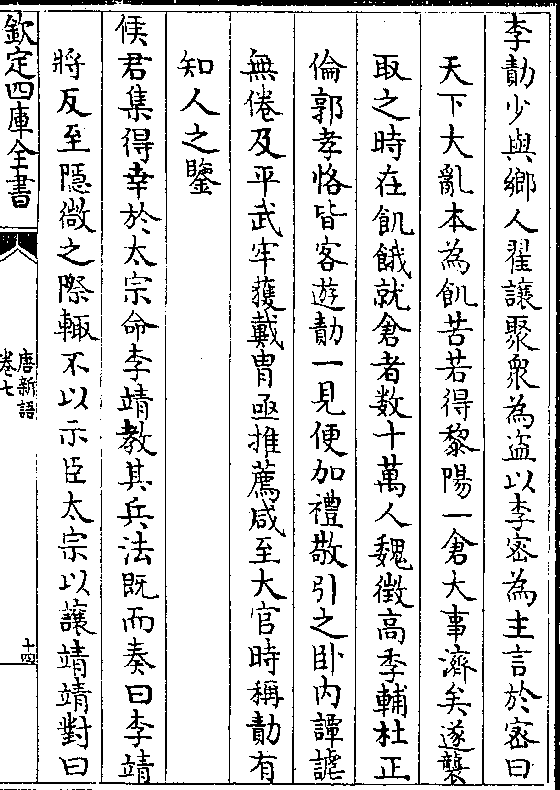 李勣少與鄉人翟讓聚衆為盗以李宻為主言於宻曰
天下大亂本為飢苦若得黎陽一倉大事濟矣遂襲
取之時在飢餓就倉者數十萬人魏徵高季輔杜正
倫郭孝恪皆客遊勣一見便加禮敬引之卧内譚謔
無倦及平武牢獲戴胄亟推薦咸至大官時稱勣有
知人之鑒
侯君集得幸於太宗命李靖教其兵法既而奏曰李靖
將反至隱微之際輙不以示臣太宗以讓靖靖對曰
欽定四庫全書
唐新語
卷七
十四